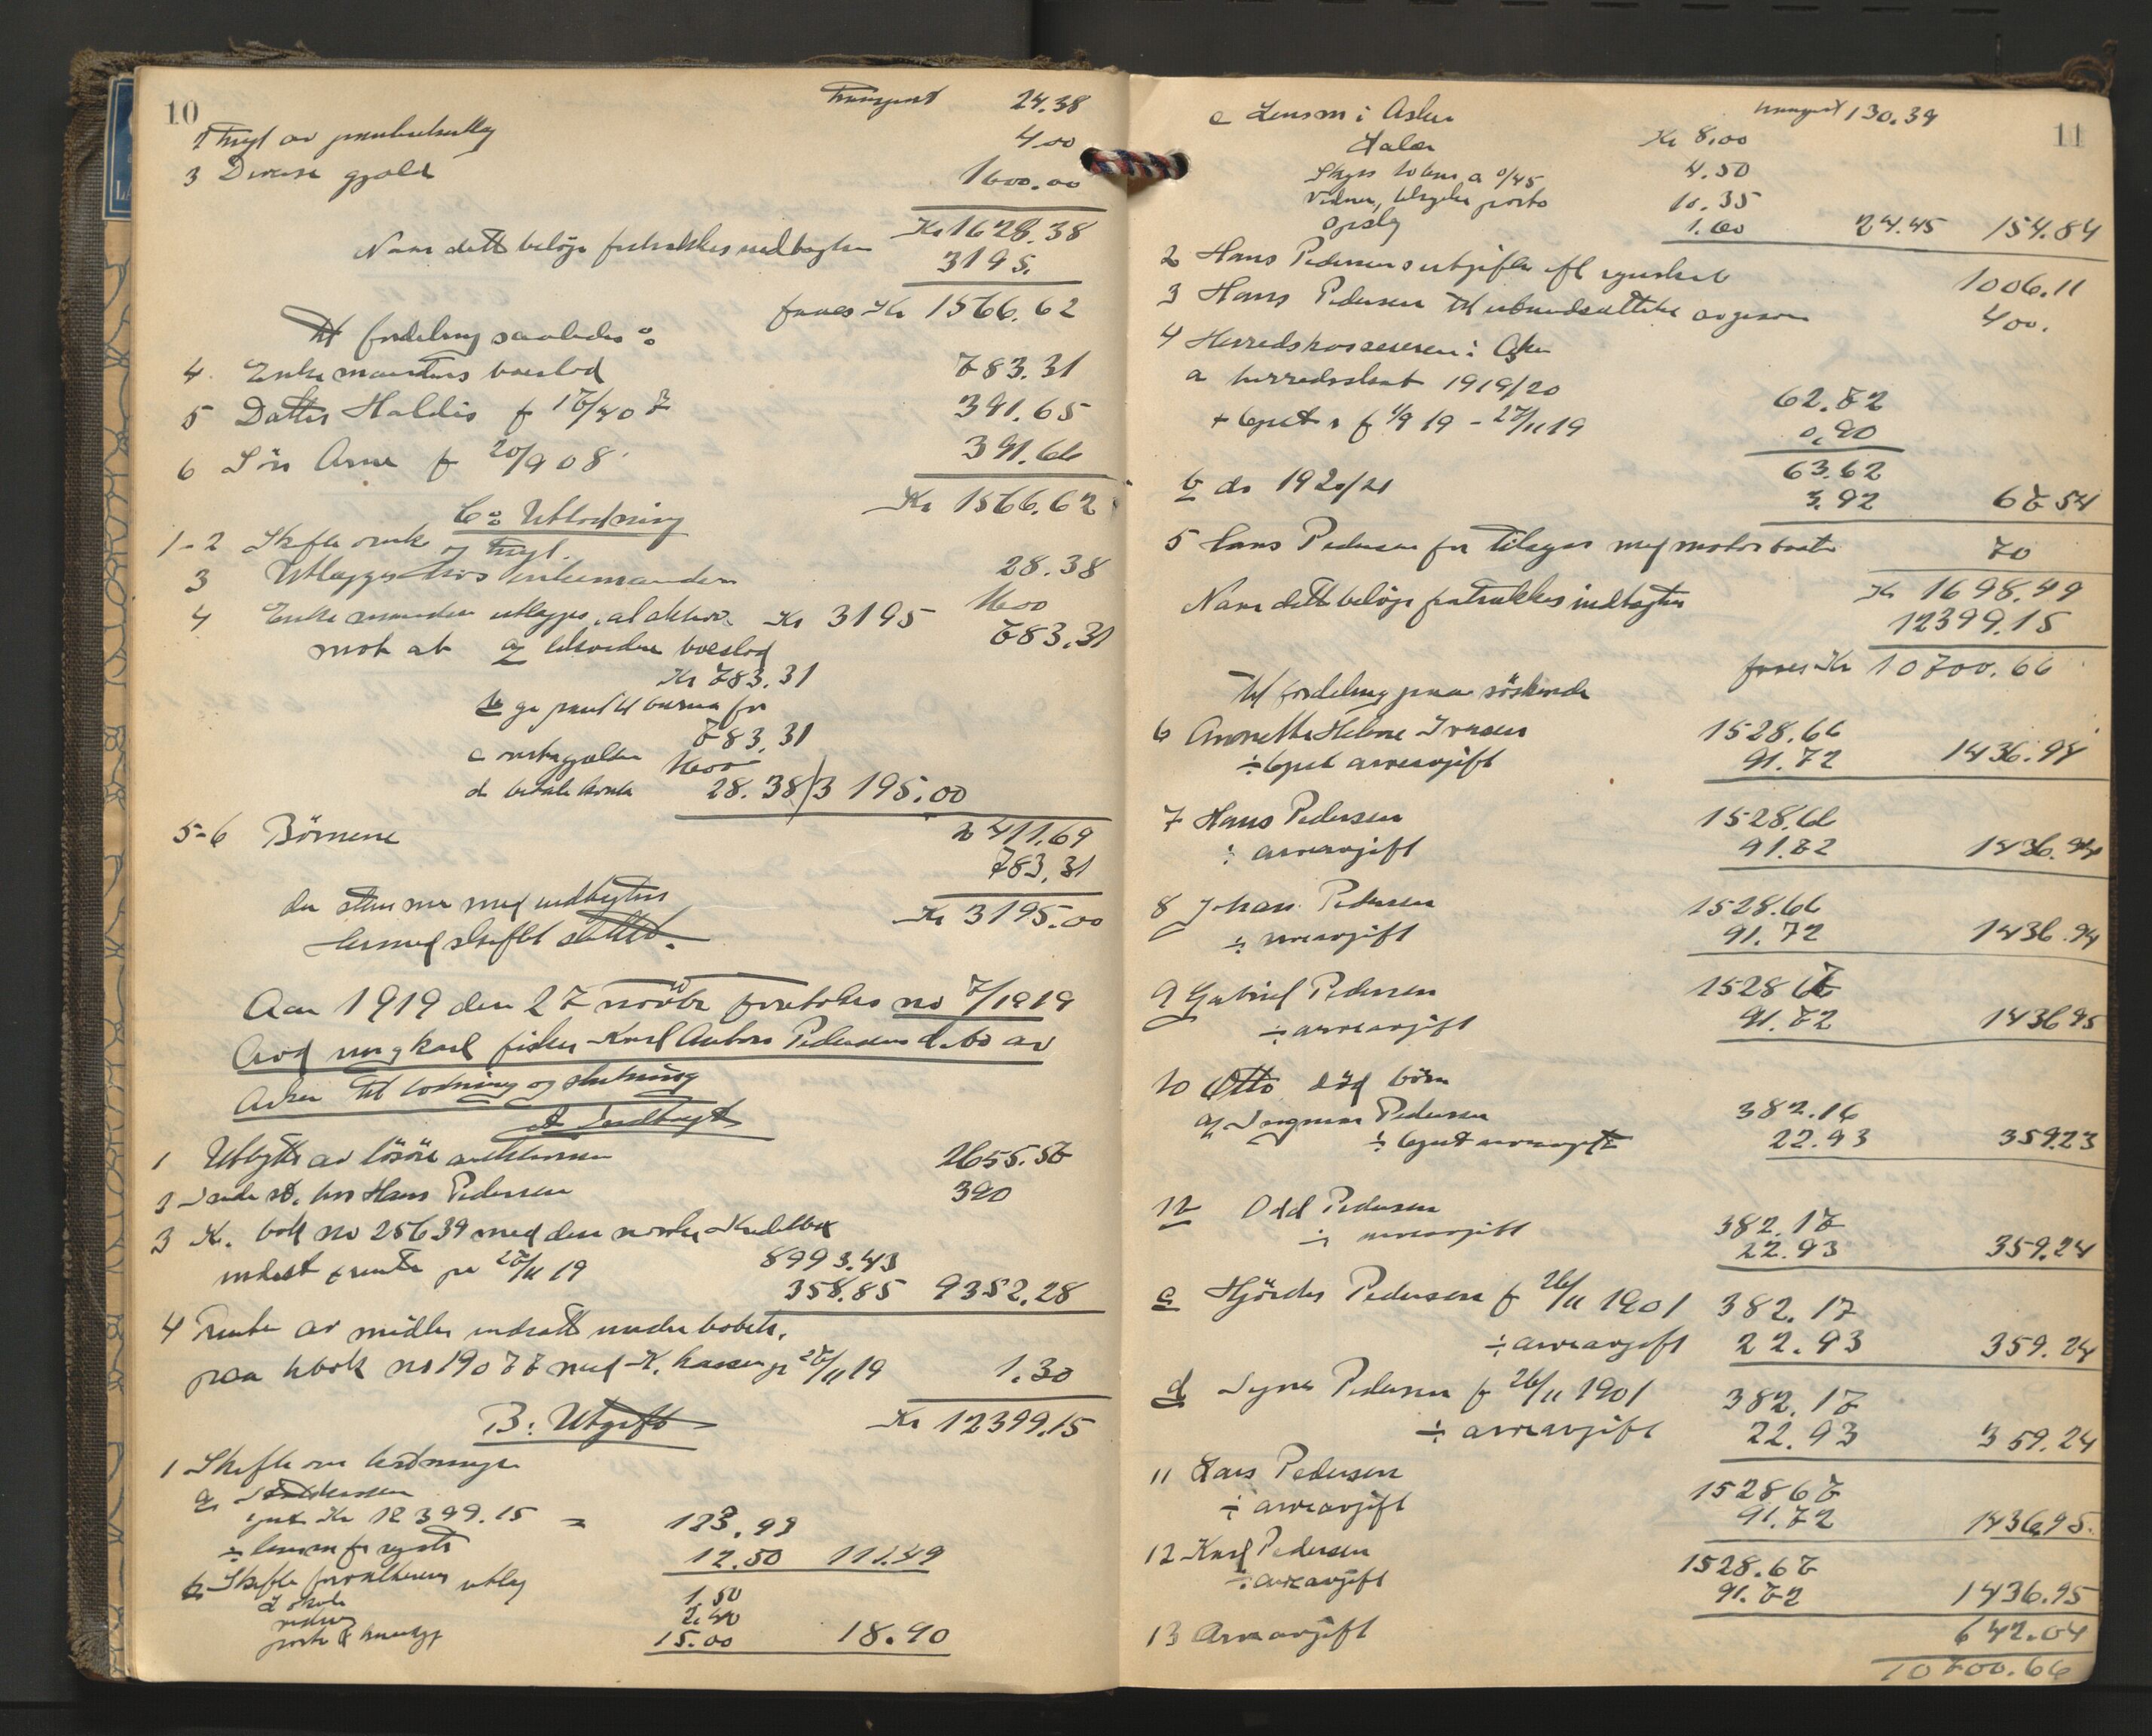 10
Transport 24.38
2 Tingl av panteheftelse 4.00
3 Diverse gjæld 1600.00
Kr 1628.38
Naar dette beløp fratrækkes indtægten 3195.
faaes Kr 1566.62
til fordeling saaledes:
4. Enkemandens boeslod 783.31
5 Datter Haldis f 17/4 07 391.65
6 Søn Arne f 20/9 08 391.66
Kr 1566.62
C: Utlodning
1-2 Skifteomk og tingl. 28.38
3 Utlægges hos enkemanden 1600
4 Enkemanden utlægges al aktiva Kr 3195 783.31
mot at a tilsvare boeslod
Kr 783.31
b gi pant til barna for
783.31
c overta gjælden 1600
d betale omk 28.38 / 3195.00
5-6 Børnene 2411.69
783.31
der stemmer med indtægten Kr 3195.00
Hermed skiftet sluttet.
Aar 1919 den 27 novbr foretokes no 7/1919
Avd ungkarl fisker Karl Anton Pedersens d.bo av
Asker til lodning og slutning
A Indtægt
1 Utbytte av løsøre auktionen 2655.57
2 Indest. hos Hans Pedersen 390
3 K. bok no 25639 med den norske Kreditbk
indest 8993.43
+ rente pr 27/11 19 358.85 9352.28
4 Renter av midler indsatt under bobeh.
paa kbok no 19077 med K. kassen pr 27/11 19 1.30
Kr 12399.15
B: Utgift
1 Skifteomkostninger
a
Kr 12399.15 = 123.99
÷ 12.50 111.49
b Skifteforvalterens utlæg
1.50
2.40
porto & 15.00 18.90
11
transport 130.39
c Lensm i Asker
Salær Kr 8.00
Skyss 10 km a 0/45 4.50
Vidner, telegram porto 10.35
opslag 1.60 24.45 154.84
2 Hans Pedersens utgifter efl regnskab 1006.11
3 Hans Pedersen til 400.
4 Herredskassereren i Asker
a herredsskat 1919/20 62.72
+ 6 pct r f 1/9 19 - 27/11 19 0.90
63.62
b do 1920/21 3.92 67.54
5 Hans Pedersen for tilsyn med motorbaaten 70
Kr 1698.49
Naar dette beløp fratrækkes indtægten 12399.15
faaes Kr 10700.66
til fordeling paa søskende
6 Annette Helene Iversen 1528.66
÷ 6 pct arveavgift 91.72 1436.94
7 Hans Pedersen 1528.66
÷ arveavgift 91.72 1436.94
8 Johan Pedersen 1528.66
÷ arveavgift 91.72 1436.94
9 Gabriel Pedersen 1528.67
÷ arveavgift 91.72 1436.95
10 Otto død børn
a Ingmar Pedersen 382.16
÷ 6 pct arveavgift 22.93 359.23
12 Odd Pedersen 382.17
÷ arveavgift 22.93 359.24
c Hjørdis Pedersen f 26/11 1901 382.17
÷ arveavgift 22.93 359.24
d Signe Pedersen f 26/11 1901 382.17
÷ arveavgift 22.93 359.24
11 Lars Pedersen 1528.67
÷ arveavgift 91.72 1436.95.
12 Karl Pedersen 1528.67
÷ arveavgift 91.72 1436.95
13 Arveavgift 642.04
10700.66